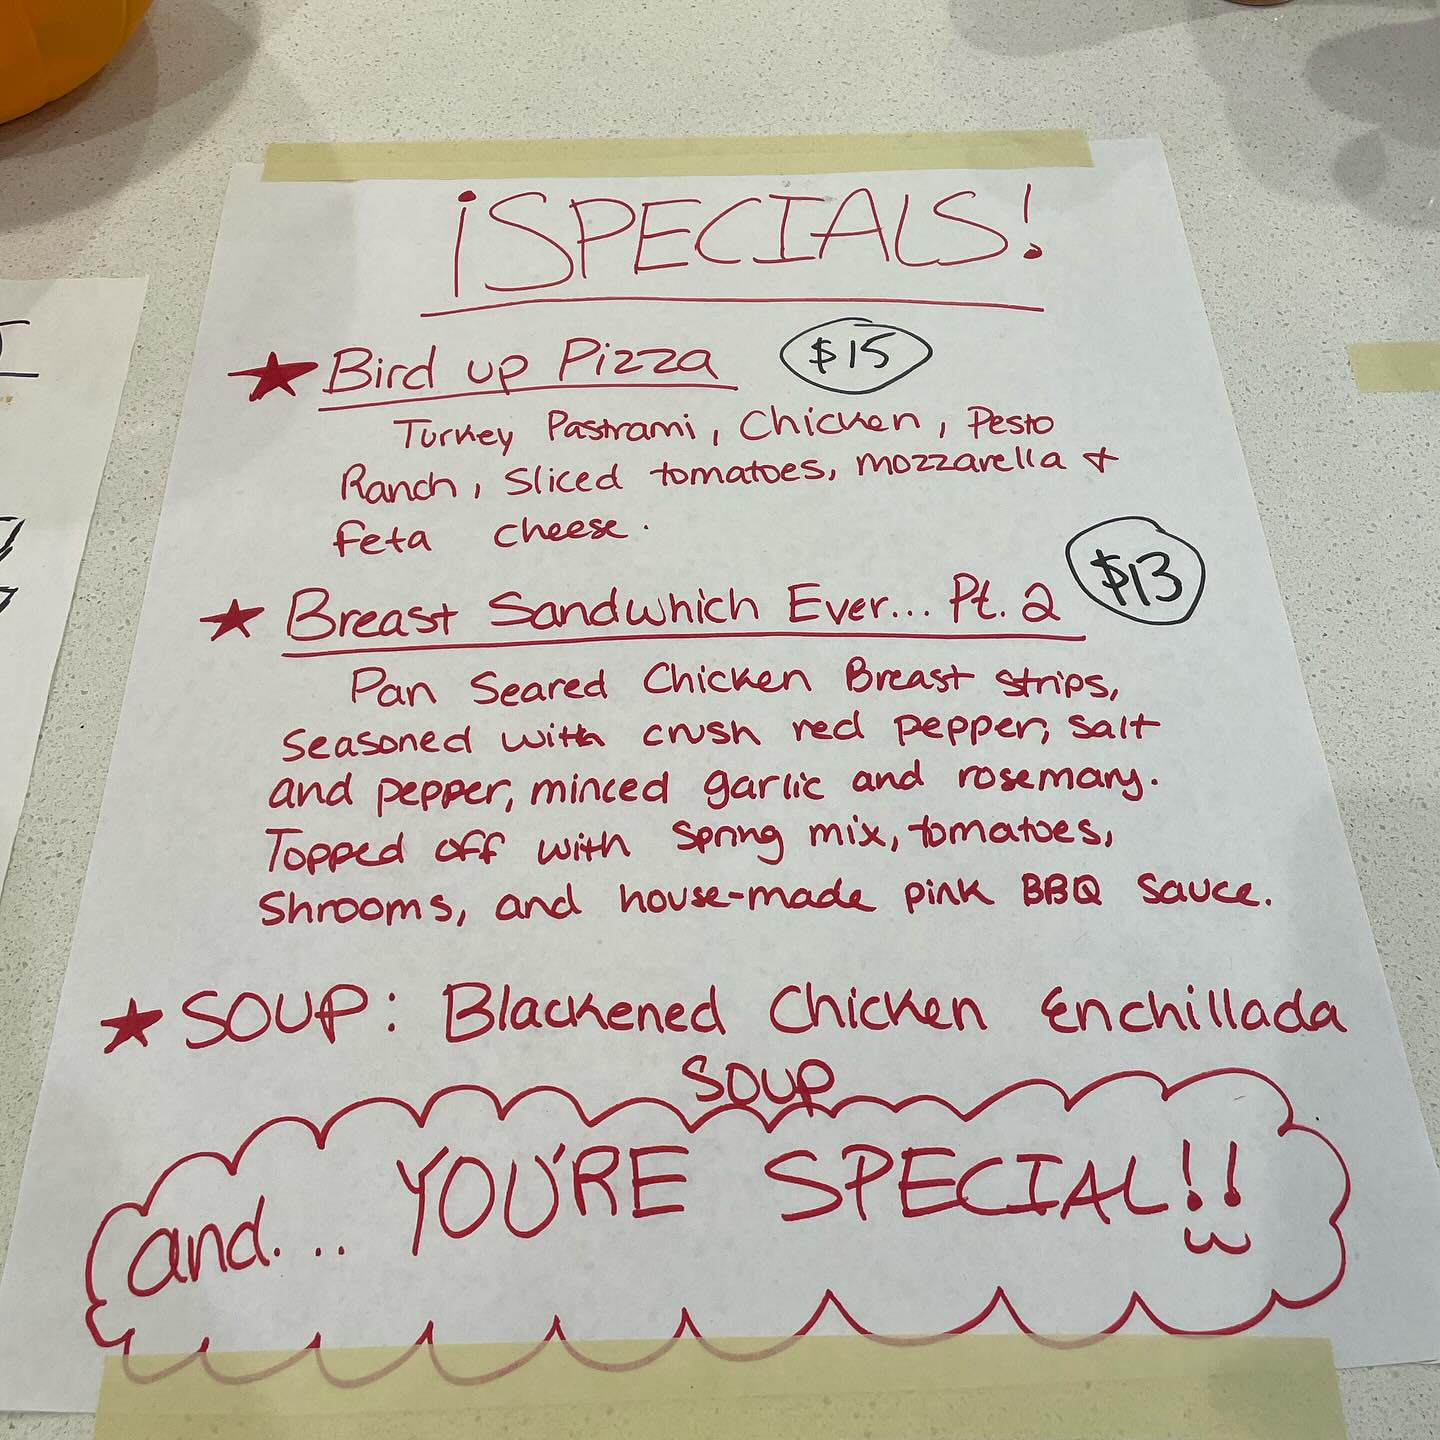 ¡SPECIALS!
★ Bird up Pizza $15
Turkey Pastrami, Chicken, Pesto
Ranch, Sliced tomatoes, mozzarella &
feta cheese.
★ Breast Sandwhich Ever... Pt. 2 $13
Pan Seared Chicken Breast strips,
seasoned with crush red pepper, salt
and pepper, minced garlic and rosemary.
Topped off with spring mix, tomatoes,
Shrooms, and house-made pink BBQ sauce.
★ SOUP: Blackened Chicken Enchillada
SOUP
and... YOU'RE SPECIAL!!